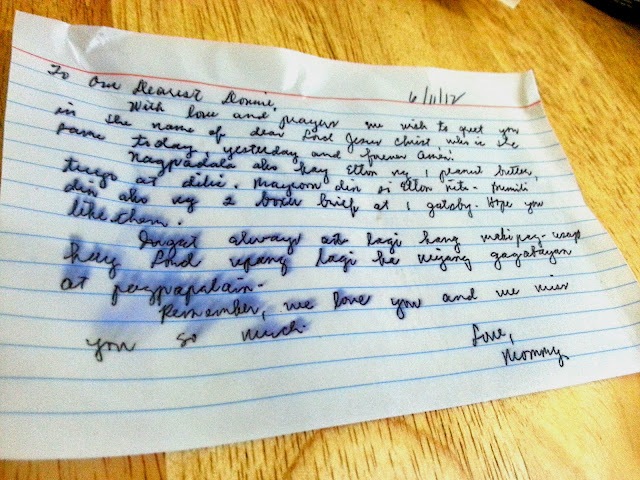 6/11/12
To Our Dearest Donnie,
With love and prayers we wish to greet you
in the name of dear Lord Jesus Christ, who is the
same today, yesterday and forever Amen.
Nagpadala ako kay Elton ng 1 peanut butter,
tuyo at dilis. Mayroon din si Elton nito. Bumili
din ako ng 2 boxer brief at 1 gatsby. Hope you
like them.
Ingat always at lagi kang makipag-usap
kay Lord upang lagi ka niyang gagabayan
at pagpapalain.
Remember, we love you and we miss
you so much.
Love,
Mommy